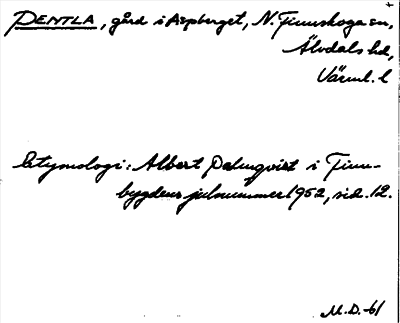 PENTLA, gård i Aspberget, N. Finnskoga sn,
Älvdals hd,
Värml. l
Etymologi: Albert Palmqvist i Finn-
bygdens julnummer 1952, sid. 12.
M.D.-61